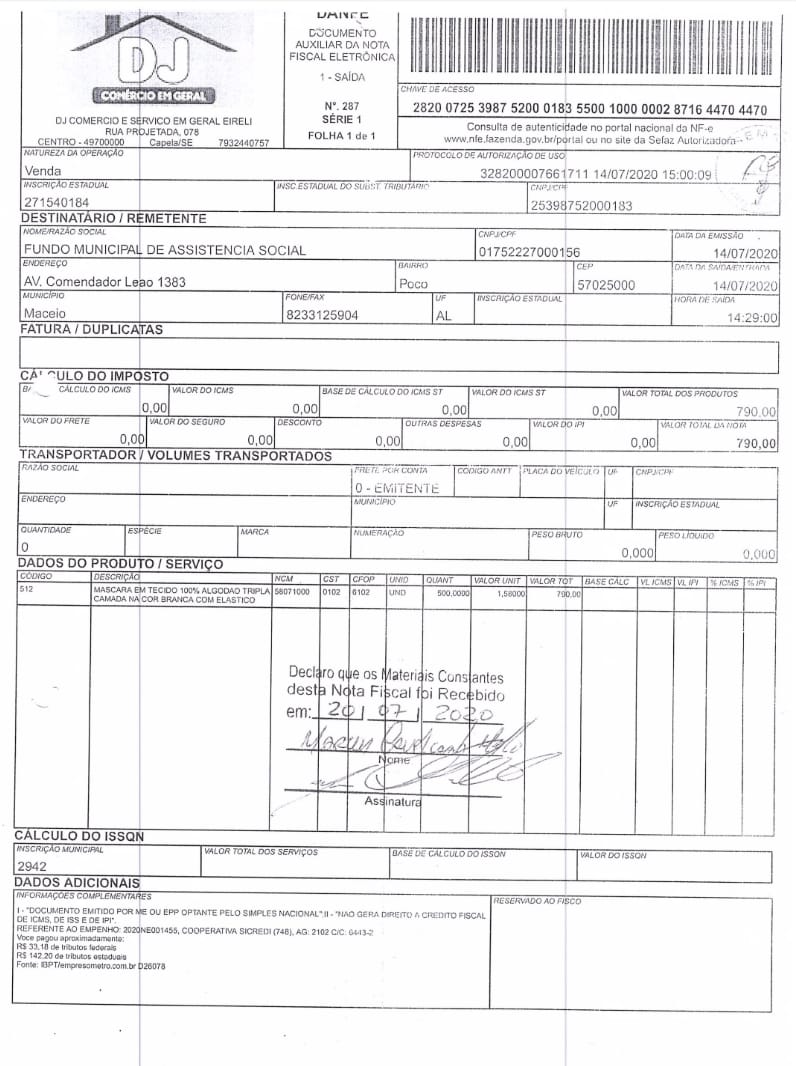 DANFE
DOCUMENTO
AUXILIAR DA NOTA
FISCAL ELETRÔNICA
1 - SAÍDA
Nº. 287
SÉRIE 1
FOLHA 1 de 1
DJ
COMÉRCIO EM GERAL
DJ COMERCIO E SERVICO EM GERAL EIRELI
RUA PROJETADA, 078
CENTRO - 49700000 Capela/SE 7932440757
CHAVE DE ACESSO
2820 0725 3987 5200 0183 5500 1000 0002 8716 4470 4470
Consulta de autenticidade no portal nacional da NF-e
www.nfe.fazenda.gov.br/portal ou no site da Sefaz Autorizadora
NATUREZA DA OPERAÇÃO PROTOCOLO DE AUTORIZAÇÃO DE USO
Venda 328200007661711 14/07/2020 15:00:09
INSCRIÇÃO ESTADUAL INSC.ESTADUAL DO SUBST. TRIBUTÁRIO CNPJ/CPF
271540184 25398752000183
DESTINATÁRIO / REMETENTE
NOME/RAZÃO SOCIAL CNPJ/CPF DATA DA EMISSÃO
FUNDO MUNICIPAL DE ASSISTENCIA SOCIAL 01752227000156 14/07/2020
ENDEREÇO BAIRRO CEP DATA DA SAÍDA/ENTRADA
AV. Comendador Leao 1383 Poco 57025000 14/07/2020
MUNICÍPIO FONE/FAX UF INSCRIÇÃO ESTADUAL HORA DE SAÍDA
Maceio 8233125904 AL 14:29:00
FATURA / DUPLICATAS
CÁLCULO DO IMPOSTO
CÁLCULO DO ICMS VALOR DO ICMS BASE DE CÁLCULO DO ICMS ST VALOR DO ICMS ST VALOR TOTAL DOS PRODUTOS
0,00 0,00 0,00 0,00 790,00
VALOR DO FRETE VALOR DO SEGURO DESCONTO OUTRAS DESPESAS VALOR DO IPI VALOR TOTAL DA NOTA
0,00 0,00 0,00 0,00 0,00 790,00
TRANSPORTADOR / VOLUMES TRANSPORTADOS
RAZÃO SOCIAL FRETE POR CONTA CODIGO ANTT PLACA DO VEÍCULO UF CNPJ/CPF
0 - EMITENTE
ENDEREÇO MUNICÍPIO UF INSCRIÇÃO ESTADUAL
QUANTIDADE ESPÉCIE MARCA NUMERAÇÃO PESO BRUTO PESO LÍQUIDO
0 0,000 0,000
DADOS DO PRODUTO / SERVIÇO
CÓDIGO DESCRIÇÃO NCM CST CFOP UNID QUANT VALOR UNIT VALOR TOT BASE CÁLC VL ICMS VL IPI % ICMS % IPI
512 MASCARA EM TECIDO 100% ALGODAO TRIPLA 58071000 0102 6102 UND 500,0000 1,58000 790,00
CAMADA NA COR BRANCA COM ELASTICO
Declaro que os Materiais Constantes
desta Nota Fiscal foi Recebido
em: 20/07/2020
Nome
Assinatura
CÁLCULO DO ISSQN
INSCRIÇÃO MUNICIPAL VALOR TOTAL DOS SERVIÇOS BASE DE CÁLCULO DO ISSQN VALOR DO ISSQN
2942
DADOS ADICIONAIS
INFORMAÇÕES COMPLEMENTARES RESERVADO AO FISCO
I - "DOCUMENTO EMITIDO POR ME OU EPP OPTANTE PELO SIMPLES NACIONAL";II - "NAO GERA DIREITO A CREDITO FISCAL
DE ICMS, DE ISS E DE IPI".
REFERENTE AO EMPENHO: 2020NE001455, COOPERATIVA SICREDI (748), AG: 2102 C/C: 6443-2
Voce pagou aproximadamente:
R$ 33,18 de tributos federais
R$ 142,20 de tributos estaduais
Fonte: IBPT/empresometro.com.br D26078